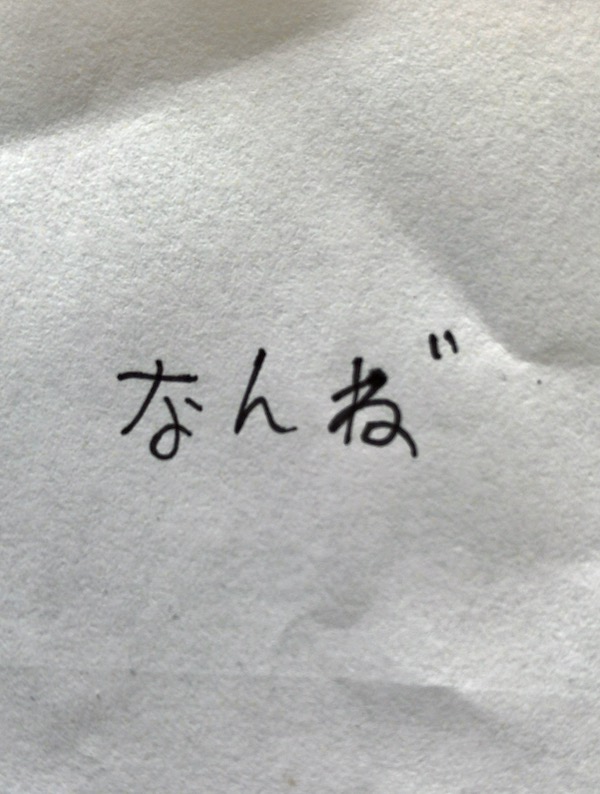 なんね゛